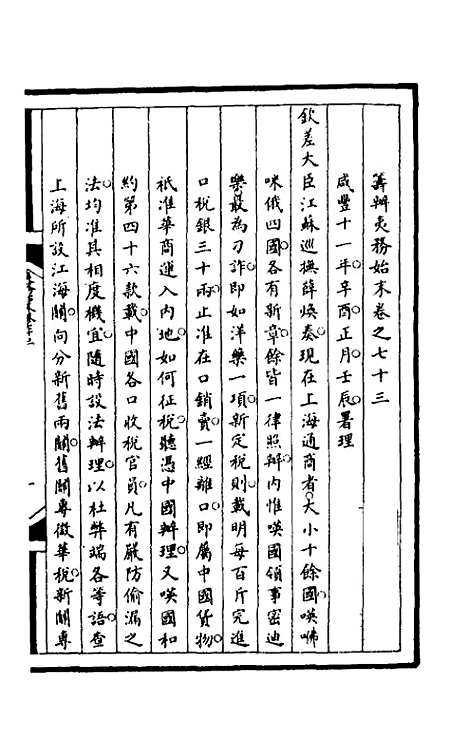 籌辦夷務始末卷之七十三
咸豐十一年辛酉正月壬辰署理
欽差大臣江蘇巡撫薛煥奏現在上海通商者大小十餘國嘆咈
咪俄四國各有新章餘皆一律照辦內惟嘆國領事密迪
樂最為刁詐即如洋藥一項新定稅則載明每百斤完進
口稅銀三十兩止准在口銷賣一經離口即屬中國貨物
祗准華商運入內地如何征稅聽憑中國辦理又嘆國和
約第四十六款載中國各口收稅官員凡有嚴防偷漏之
法均准其相度機宜隨時設法辦理以杜弊端各等語查
上海所設江海關向分新舊兩關舊關專徵華稅新關專